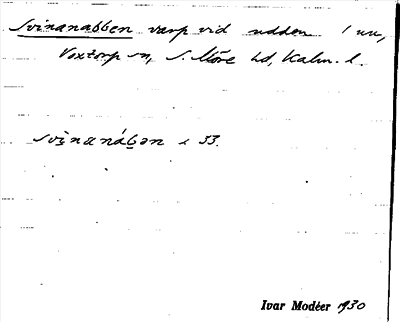 Svinanabben varp vid udden / uu,
Voxtorp sn, S. Möre hd, Kalm. l.
svi̇̀nanábən < 33.
Ivar Modéer 1930